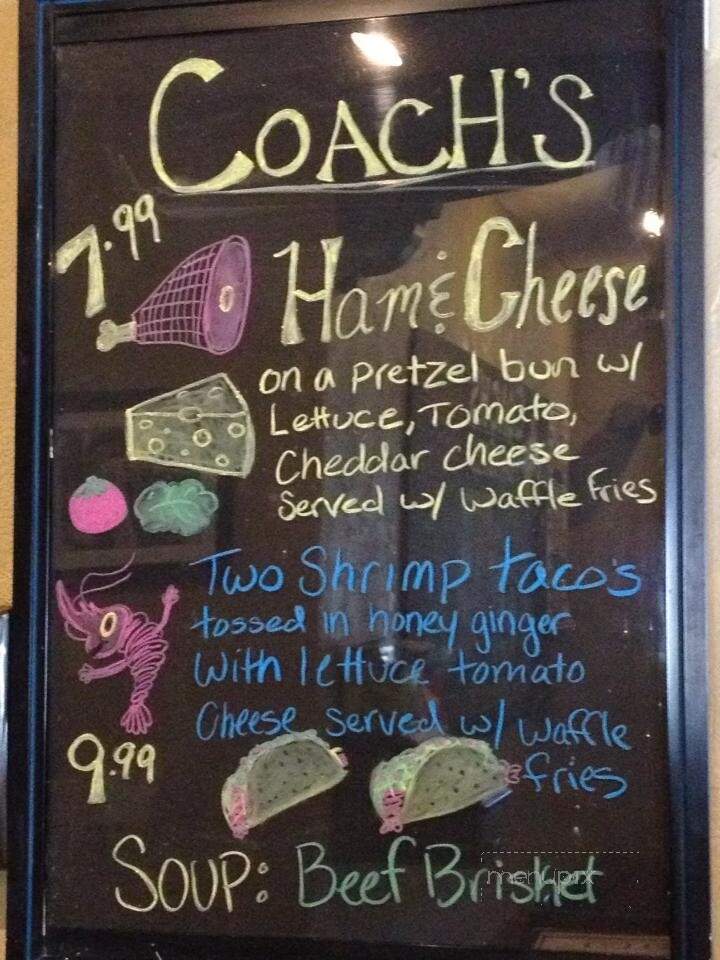 COACH'S
7.99
Ham & Cheese
on a pretzel bun w/
Lettuce, Tomato,
Cheddar cheese
Served w/ Waffle Fries
Two Shrimp taco's
tossed in honey ginger
with lettuce tomato
Cheese served w/ waffle
fries
9.99
SOUP: Beef Brisket
menupix